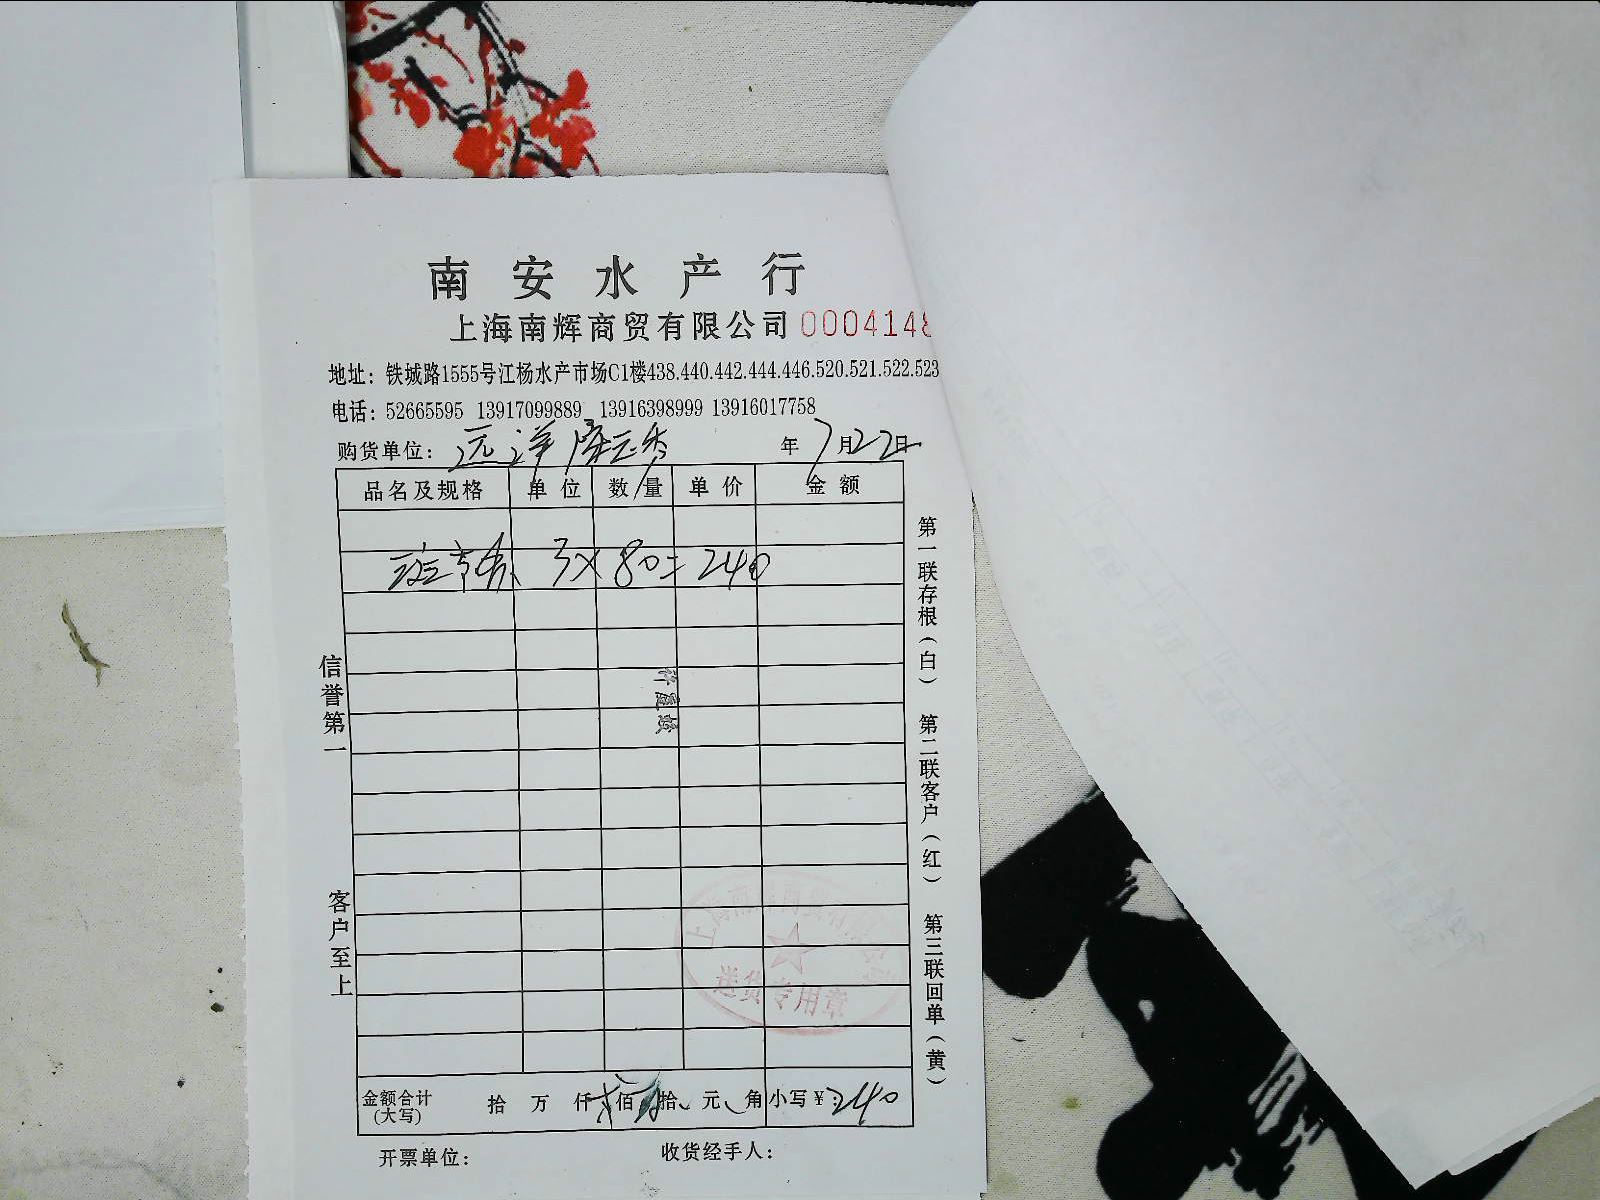 南安水产行
上海南辉商贸有限公司 0004148
地址：铁城路1555号江杨水产市场C1楼438.440.442.444.446.520.521.522.523
电话：52665595 13917099889 13916398999 13916017758
购货单位：远洋 年7月22日
品名及规格 单位 数量 单价 金额
3×80=240
信誉第一
客户至上
第一联存根（白）
第二联客户（红）
第三联回单（黄）
送货专用章
金额合计(大写) 拾 万 仟 佰 拾 元 角 小写￥：240
开票单位： 收货经手人：